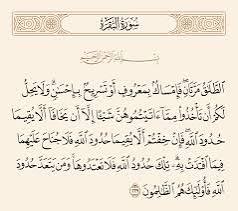 سُورَةُ البَقَرَةِ
بِسْمِ اللَّهِ الرَّحْمَٰنِ الرَّحِيمِ
ٱلطَّلَٰقُ مَرَّتَانِۖ فَإِمْسَاكُۢ بِمَعْرُوفٍ أَوْ تَسْرِيحُۢ بِإِحْسَٰنٖۗ وَلَا يَحِلُّ
لَكُمْ أَن تَأْخُذُواْ مِمَّآ ءَاتَيْتُمُوهُنَّ شَيْـًٔا إِلَّآ أَن يَخَافَآ أَلَّا يُقِيمَا
حُدُودَ ٱللَّهِۖ فَإِنْ خِفْتُمْ أَلَّا يُقِيمَا حُدُودَ ٱللَّهِ فَلَا جُنَاحَ عَلَيْهِمَا
فِيمَا ٱفْتَدَتْ بِهِۦۗ تِلْكَ حُدُودُ ٱللَّهِ فَلَا تَعْتَدُوهَاۚ وَمَن يَتَعَدَّ حُدُودَ
ٱللَّهِ فَأُوْلَٰٓئِكَ هُمُ ٱلظَّٰلِمُونَ ٢٢٩